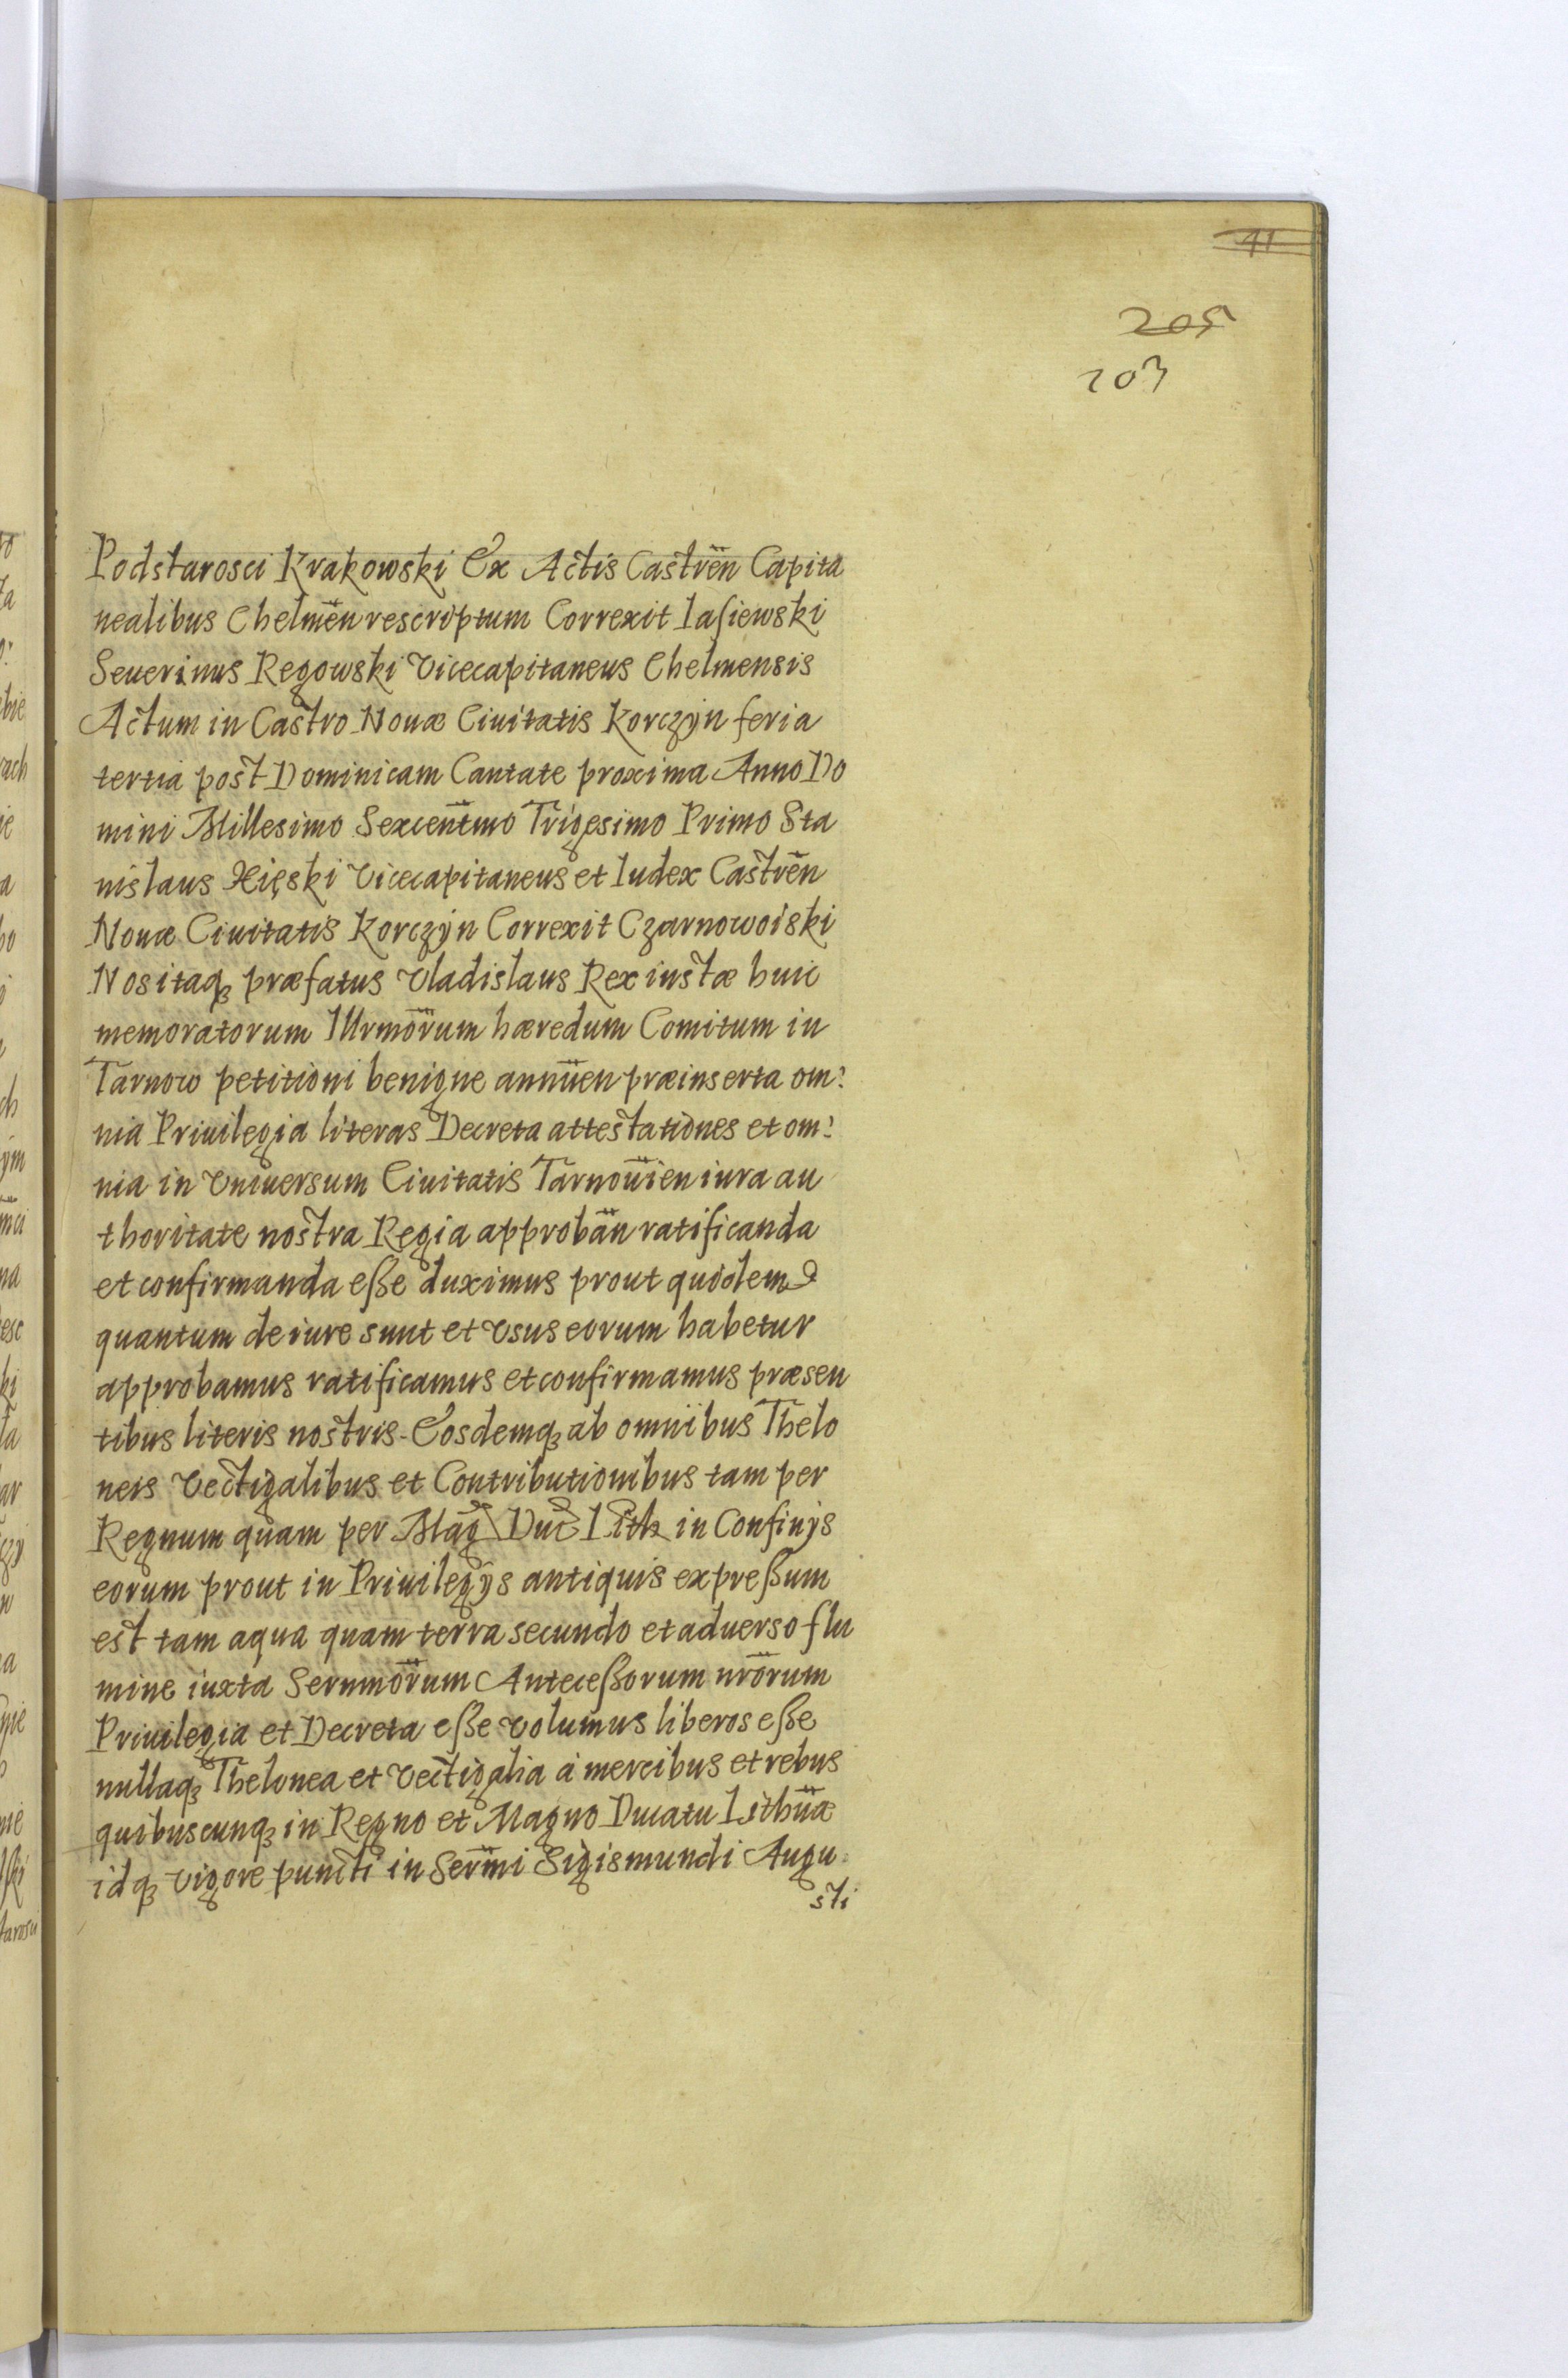 41
205
203
Podstarosci Krakowski Ex Actis Castren̄ Capita
nealibus Chelmen̄ rescriptum Correxit Iasiewski
Seuerinus Regowski Vicecapitaneus Chelmensis
Actum in Castro Nouæ Ciuitatis Korczÿn feria
tertia post Dominicam Cantate proxima Anno Do
mini Millesimo Sexcent̄mo Trigesimo Primo Sta
nislaus Xięski Vicecapitaneus et Iudex Castren̄
Nouæ Ciuitatis Korczÿn Correxit Czarnowoiski
Nos itaqꝫ præfatus Vladislaus Rex iustæ huic
memoratorum Illrmōrum hæredum Comitum in
Tarnow petitioni benigne annuen̄ præinserta om:
nia Priuilegia literas Decreta attestationes et om:
nia in Vniuersum Ciuitatis Tarnouien̄ iura au
thoritate nostra Regia approban̄ ratificanda
et confirmanda eße duximus prout quidem
quantum de iure sunt et Vsus eorum habetur
approbamus ratificamus et confirmamus præsen
tibus literis nostris. Eosdemqꝫ ab omnibus Thelo
neis Vectigalibus et Contributionibus tam per
Regnum quam per Mag Duc Lith in Confinÿs
eorum prout in Priuilegÿs antiquis expreßum
est tam aqua quam terra secundo et aduerso flu
mine iuxta Sernmōrum Anteceßorum nrōrum
Priuilegia et Decreta eße Volumus liberos eße
nullaqꝫ Thelonea et Vectigalia á mercibus et rebus
quibuscunqꝫ in Regno et Magno Ducatu Lithuæ
idqꝫ Vigore puncti in Serm̄i Sigismundi Augu
sti